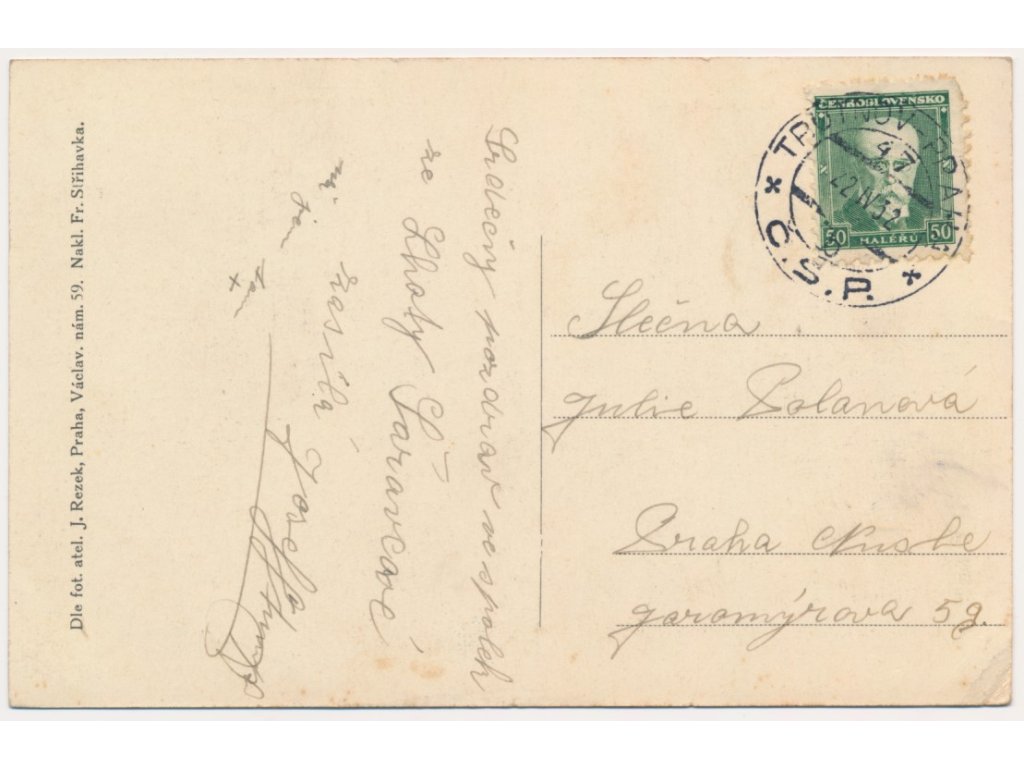 Dle fot. atel. J. Rezek, Praha, Václav. nám. 59. Nakl. Fr. Střihavka.
Srdečný pozdrav ve spolek
ze Lhoty Šaravcové
zasílá Josefa
ČESKOSLOVENSKO
50 HALÉŘŮ 50
TRUTNOV PRAHA
47
22.IV.32
Č.S.P.
Slečna
Julie Polanová
Praha Nusle
Jaromýrova 59.